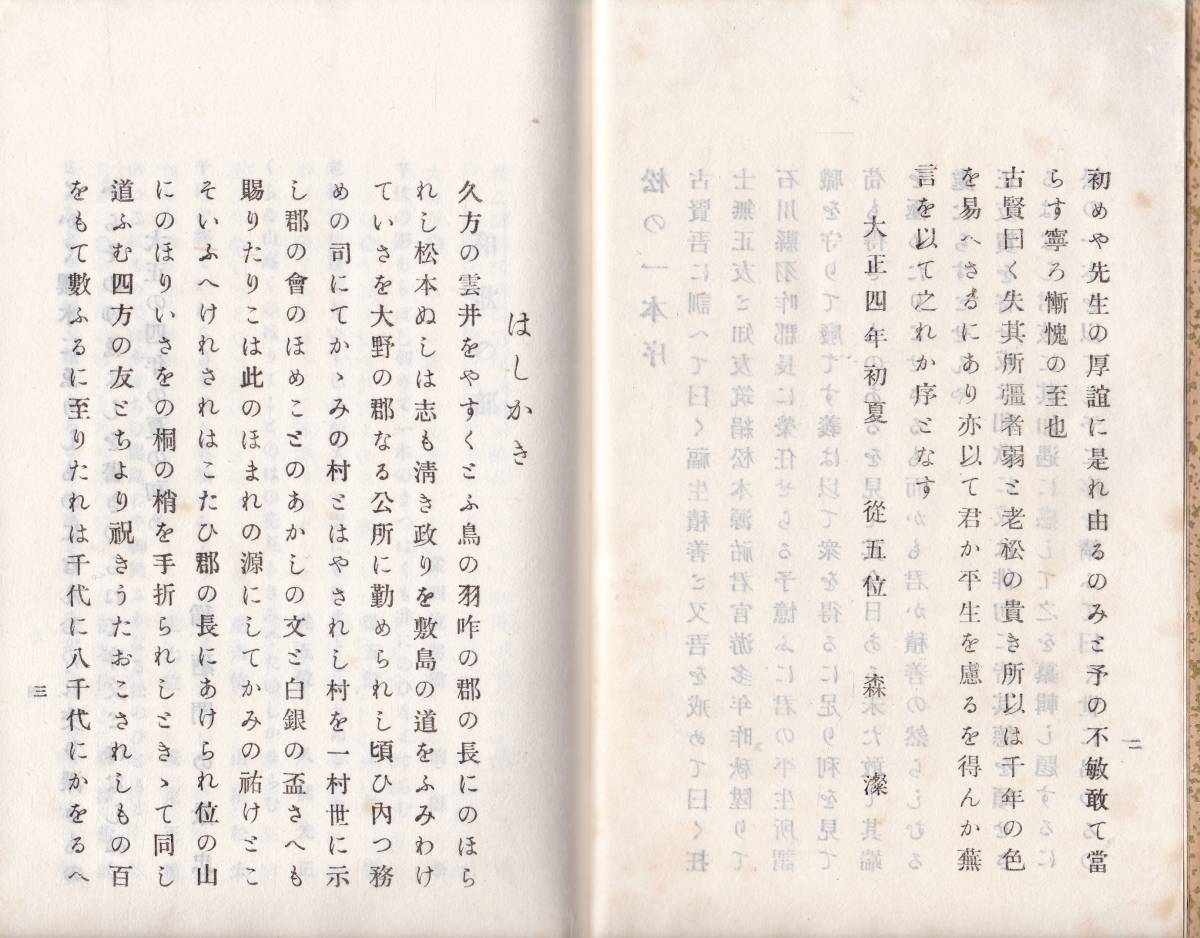 初めや先生の厚誼に是れ由るのみと予の不敏敢て當
らす寧ろ慚愧の至也
古賢曰く失其所彊者弱と老松の貴き所以は千年の色
を易へさるにあり亦以て君か平生を慮るを得んか蕪
言を以て之れか序となす
大正四年初夏　從五位　森　濚
二
はしかき
久方の雲井をやすくとふ鳥の羽咋の郡の長にのほら
れし松本ぬしは志も淸き政りを敷島の道をふみわけ
ていさを大野の郡なる公所に勤められし頃ひ內つ務
めの司にてかゝみの村とはやされし村を一村世に示
し郡の會のほめことのあかしの文と白銀の盃さへも
賜りたりこは此のほまれの源にしてかみの祐けとこ
そいふへけれされはこたひ郡の長にあけられ位の山
にのほりいさをの桐の梢を手折られしときゝて同し
道ふむ四方の友とちより祝きうたおこされしもの百
をもて數ふるに至りたれは千代に八千代にかをるへ
三